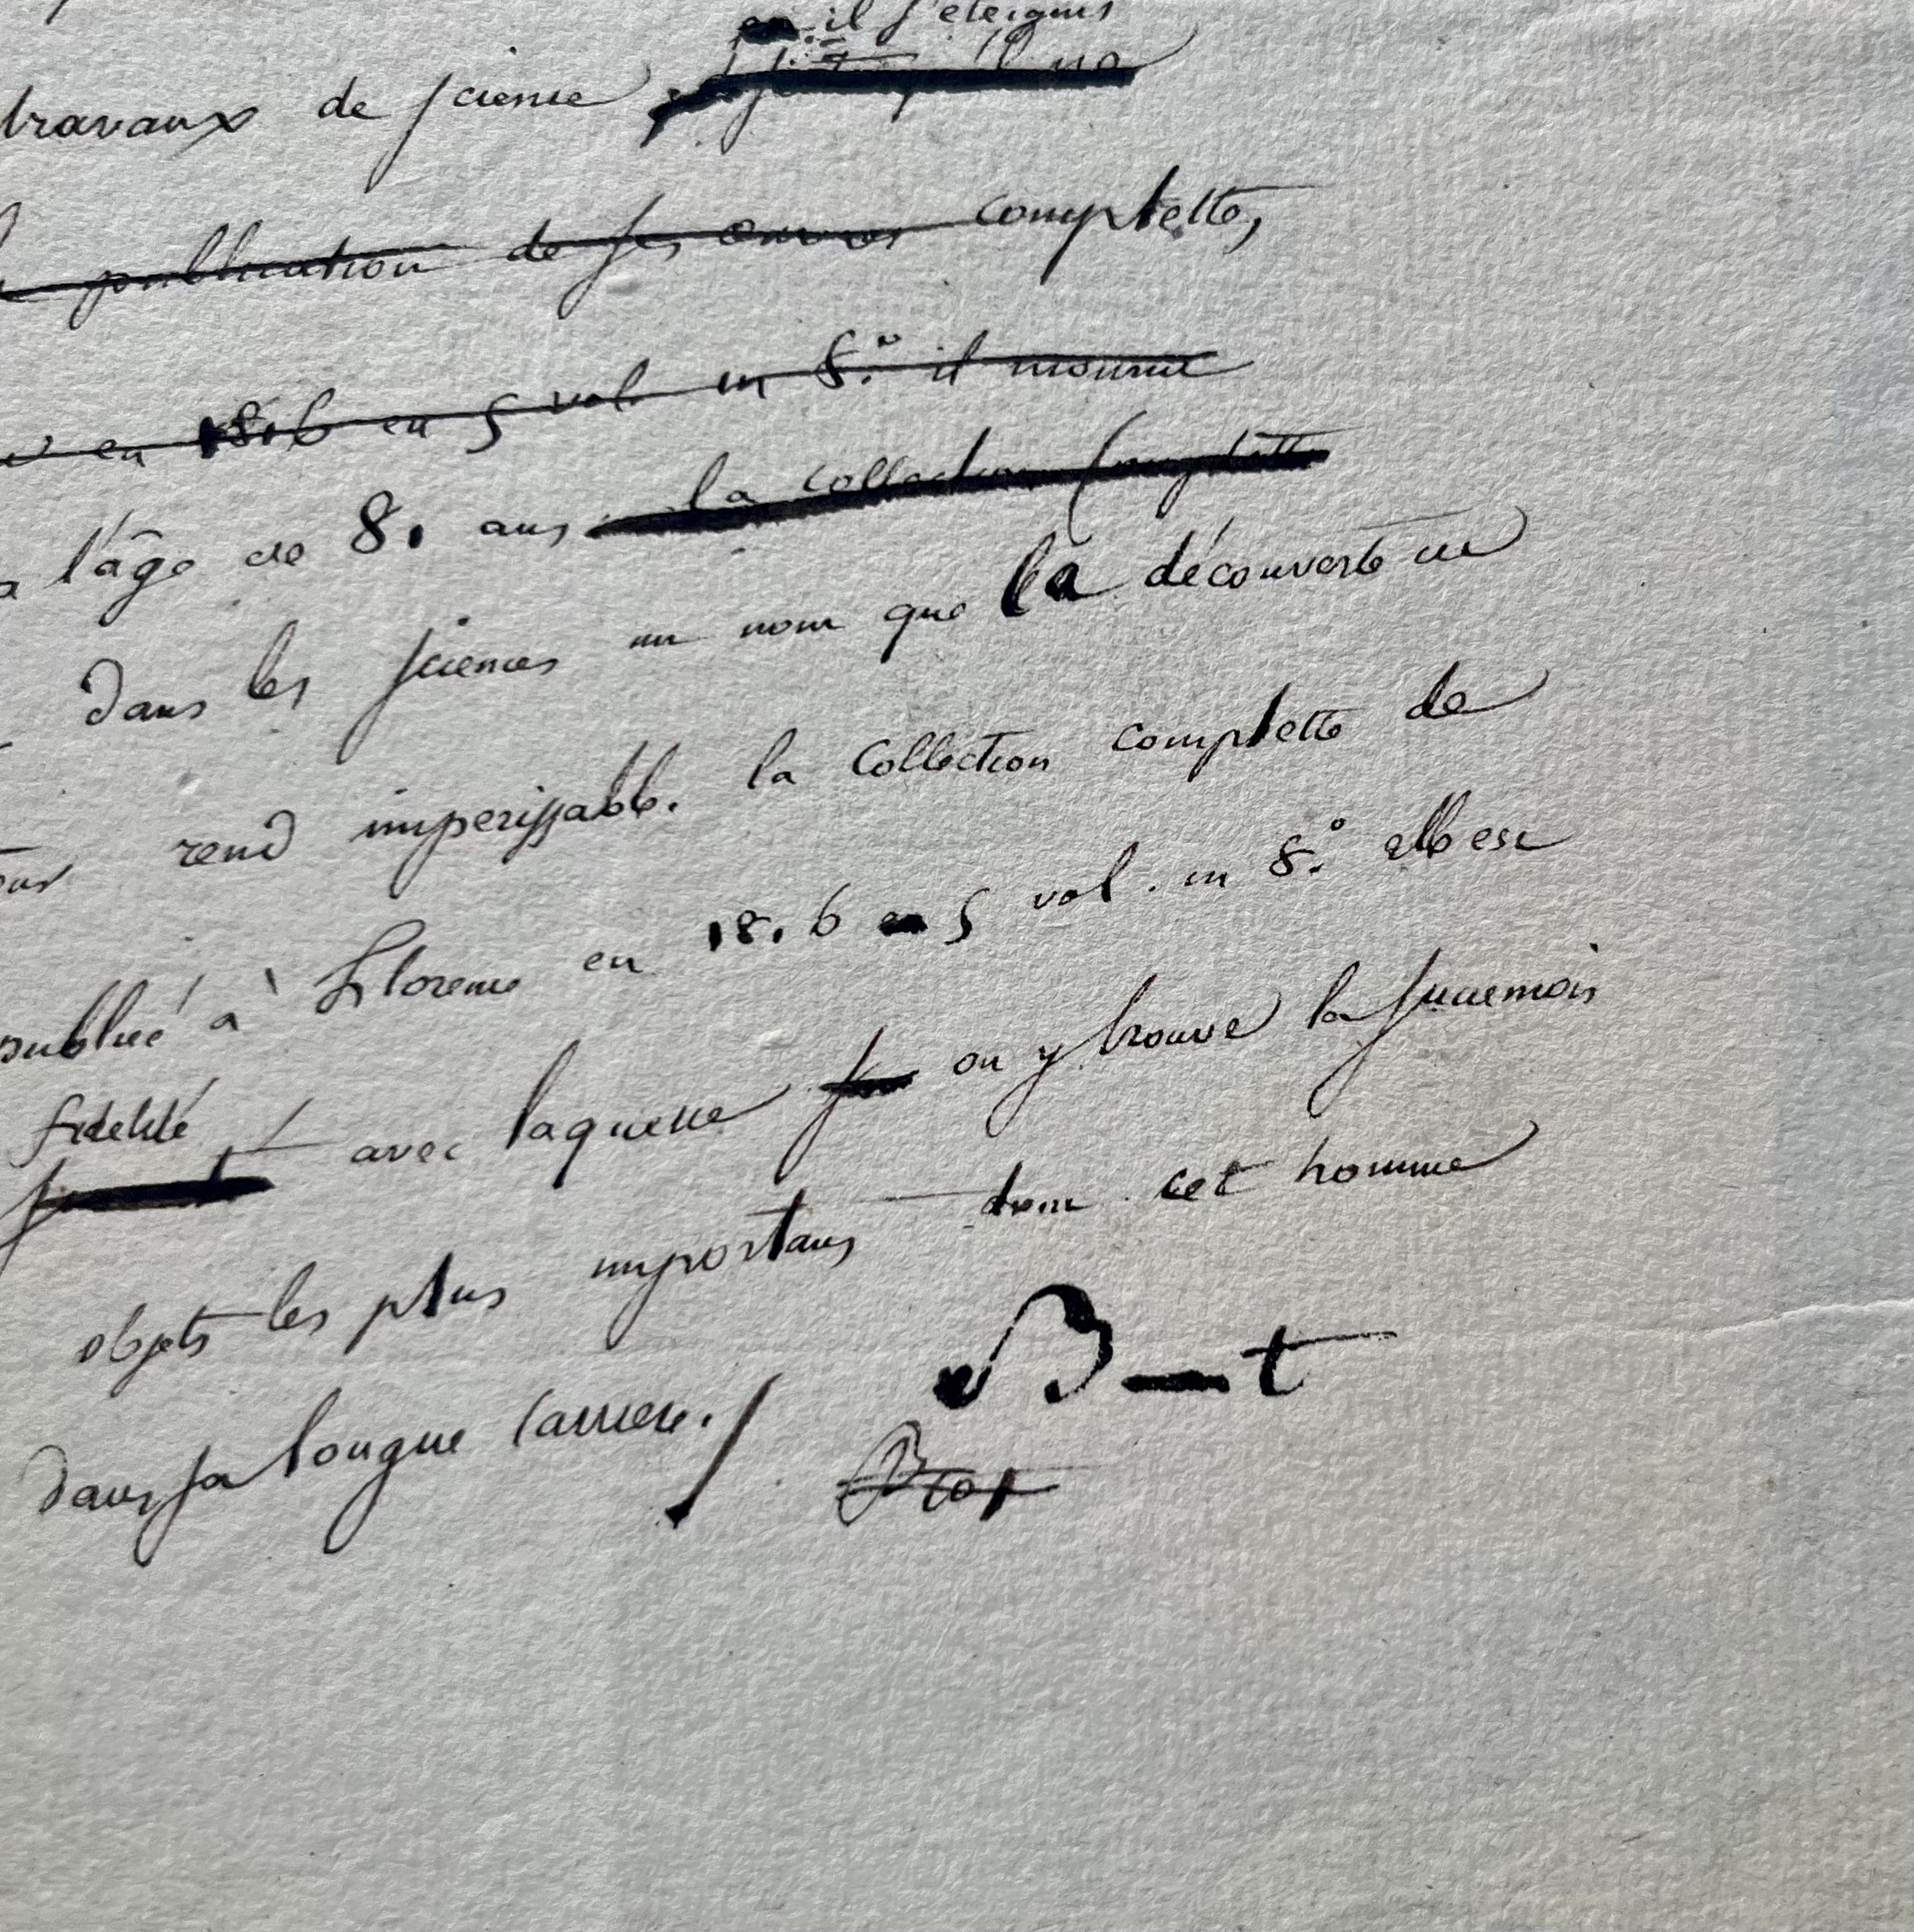 il s'éteignit
travaux de science
publication de ses œuvres complettes
en 1816 en 5 vol in 8.° il mourut
l'âge de 81 ans la collection complette
dans les sciences un nom que la découverte
rend imperissable. la Collection complette de
publiée à Florence en 1816 en 5 vol. in 8.° elle est
fidelité
avec laquelle on y trouve la
objets les plus importans dont cet homme
dans sa longue carriere.
B—t
Biot